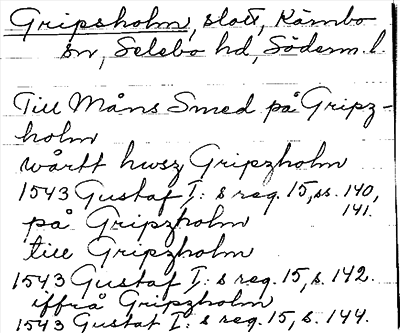 Gripsholm, slott, Kärnbo
sn, Selebo hd, Söderm. l.
Till Måns Smed på Gripz-
holm
wårtt hwsz Gripzholm
1543 Gustaf I:s reg. 15, ss. 140,
141.
på Gripzholm
till Gripzholm
1543 Gustaf I:s reg. 15, s. 142.
iffrå Gripzholm
1543 Gustaf I:s reg. 15, s. 144.